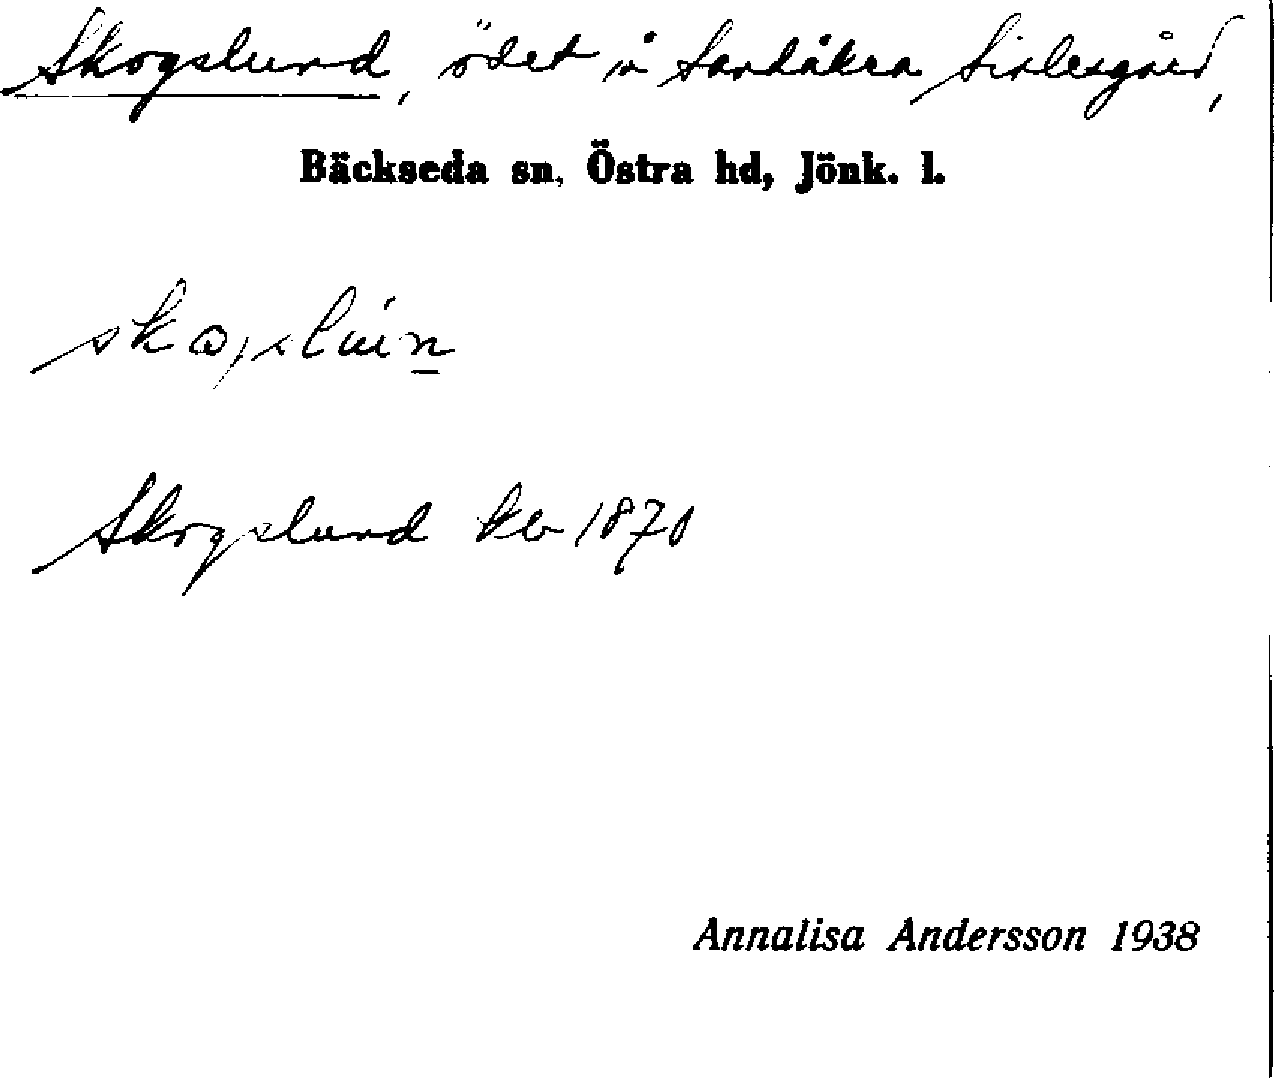 Skogslund, ödet på Sandåkra Sirlesgård,
Bäckseda sn, Östra hd, Jönk. l.
Skogslund kb 1870
Annalisa Andersson 1938